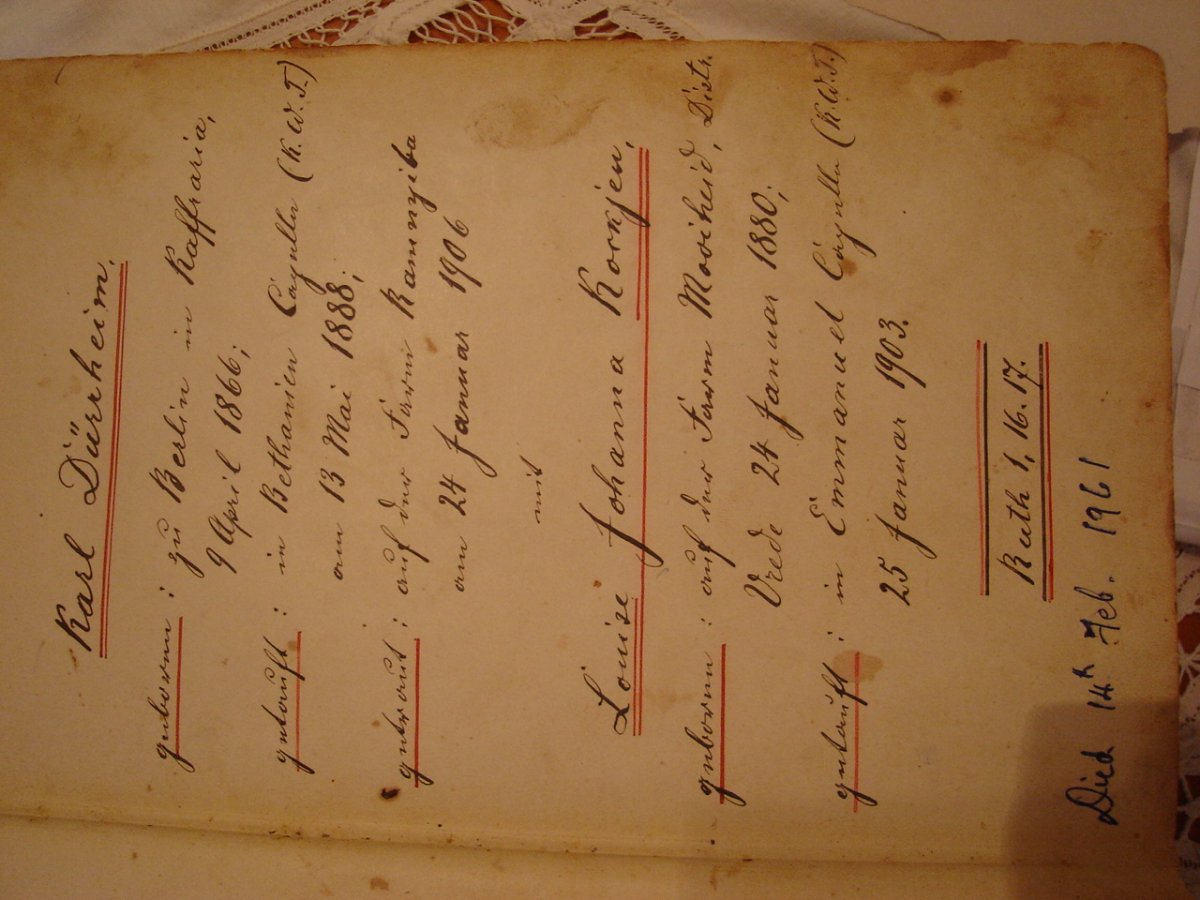 Karl Dürrheim,
geboren: zu Berlin in Kaffraria,
9 April 1866;
getauft: in Bethanien Capelle (K.W.T.)
am 13 Mai 1888;
getraut: auf der Farm Kamnyiba
am 24 Januar 1906
mit
Louise Johanna Kookjen,
geboren: auf der Farm Mooiheid, Distr.
Vrede 24 Januar 1880;
getauft: in Emmanuel Capelle (K.W.T.)
25 Januar 1903.
Ruth 1, 16. 17.
Died 14th Feb. 1961